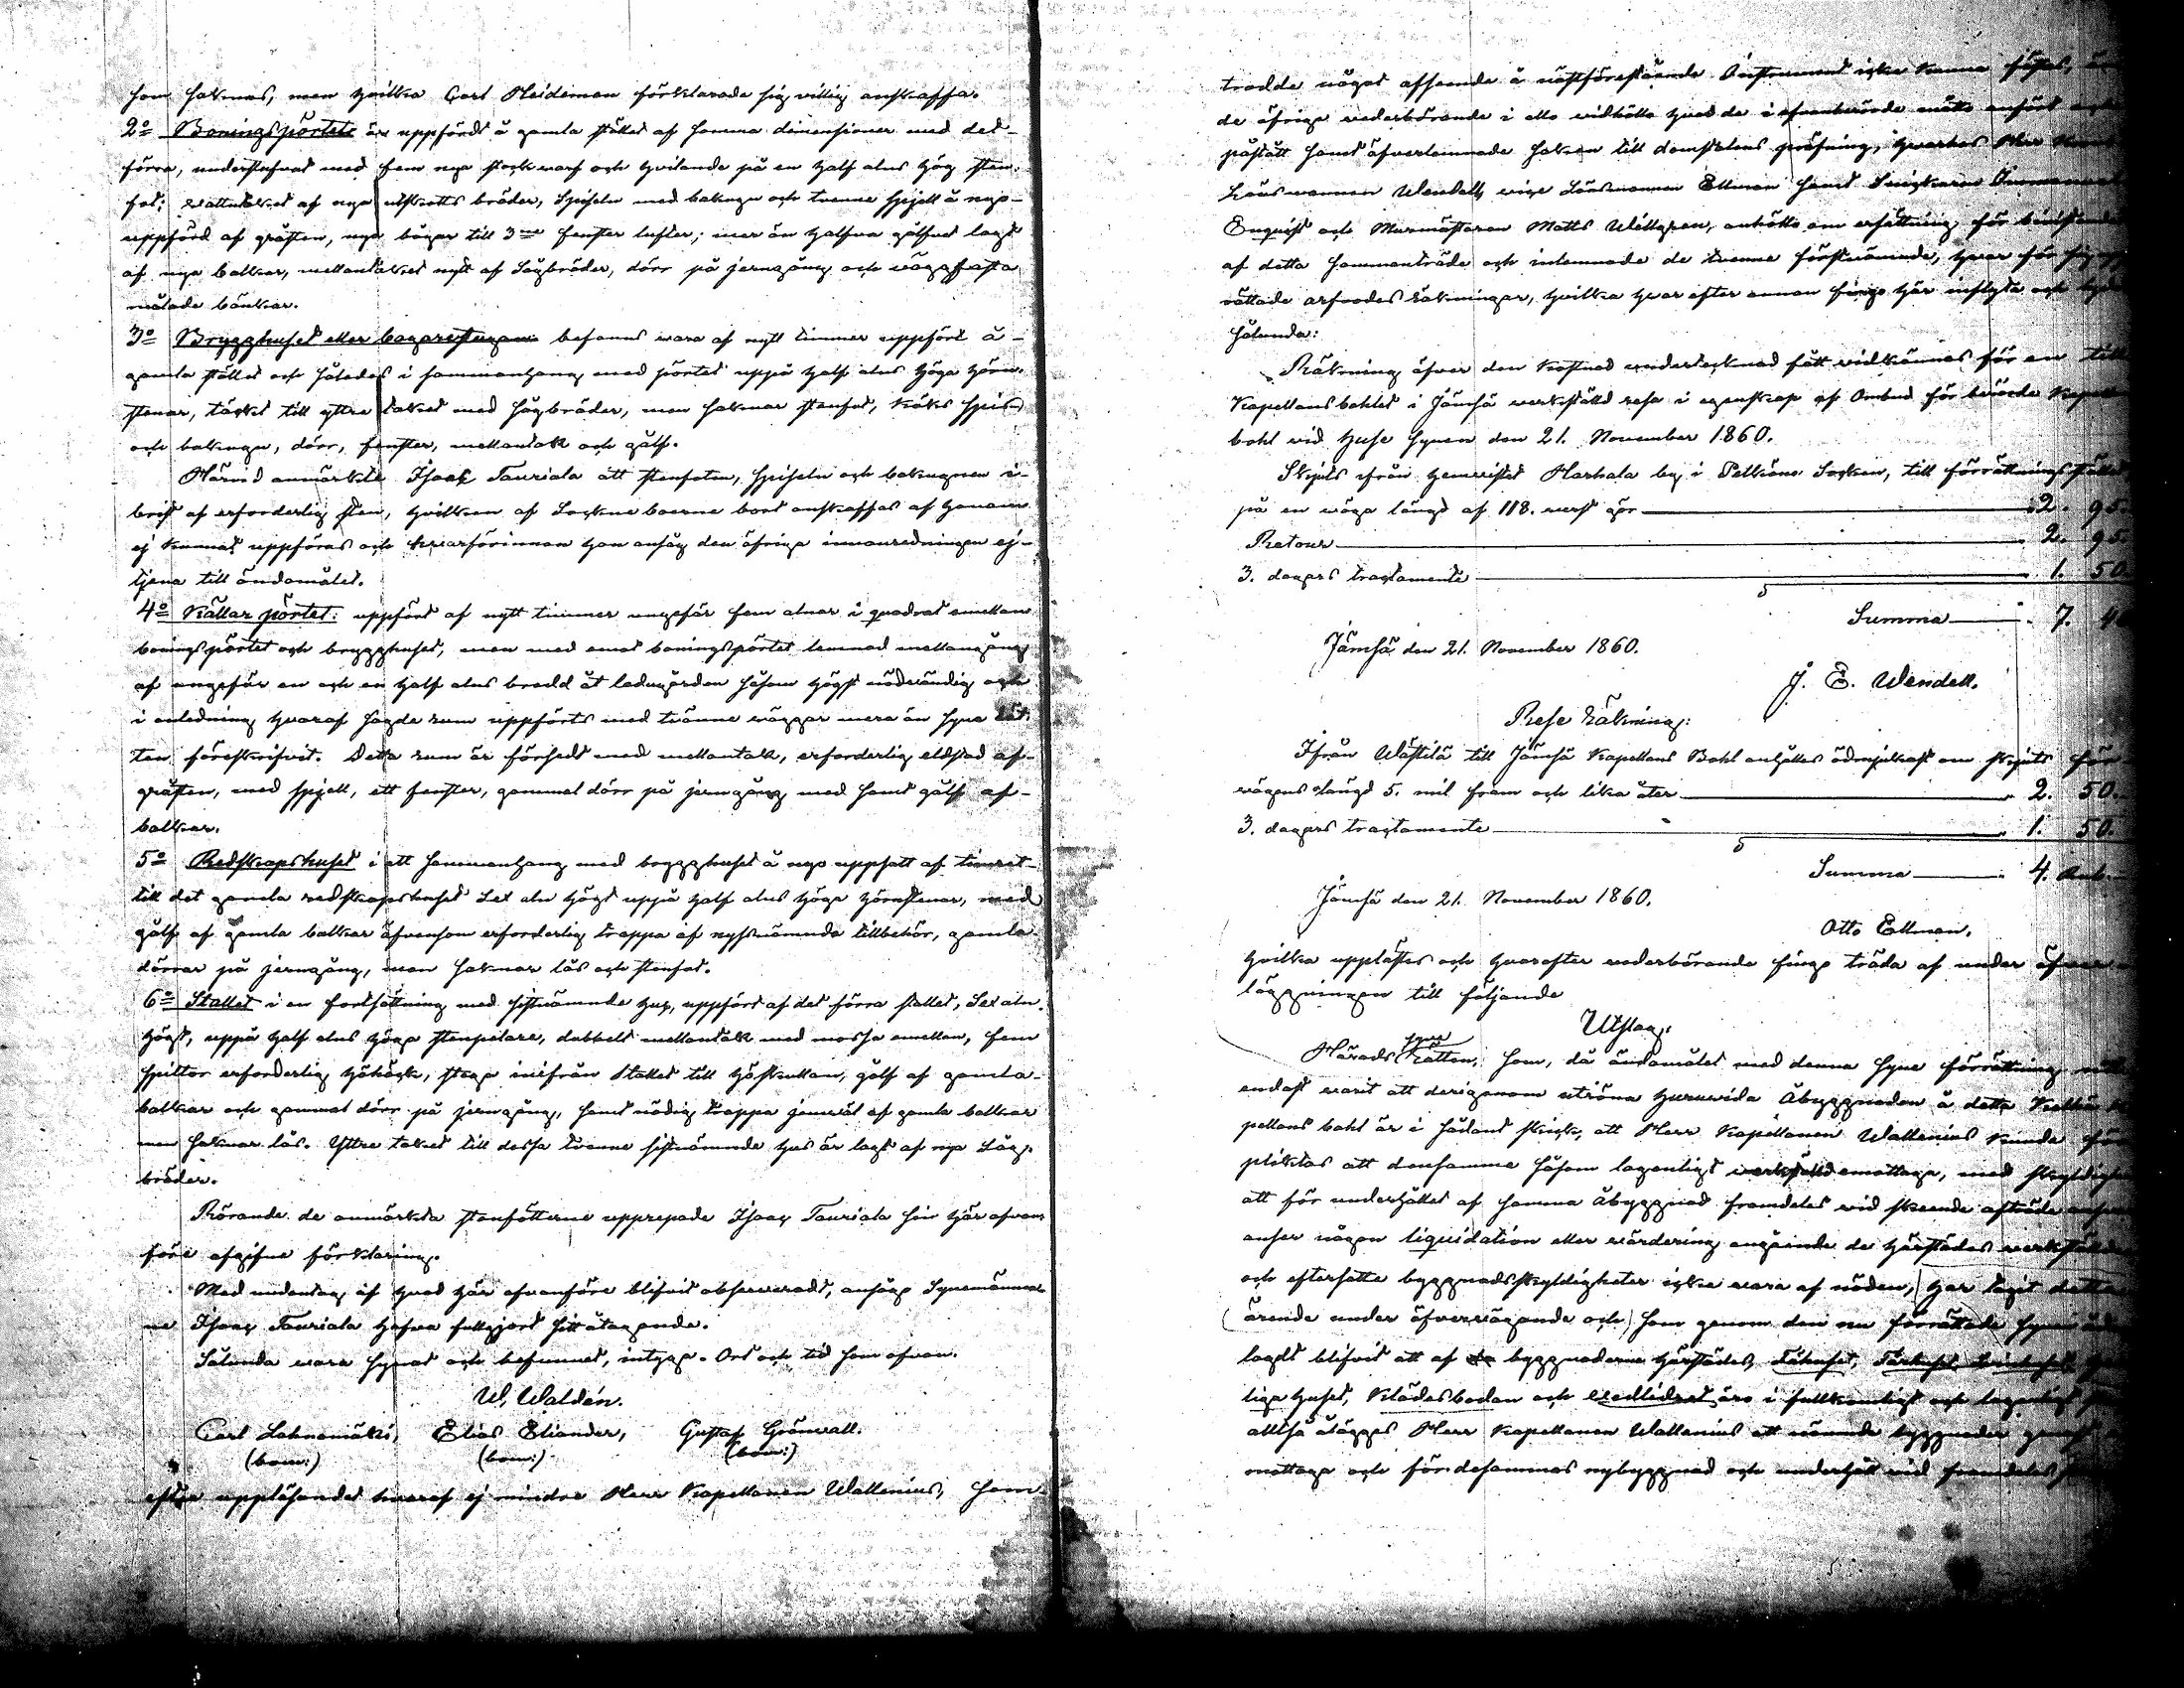 som saknas, men hvilka Carl Heideman förklarade sig villig anskaffa.
2o Boningspörtet är uppfördt å gamla stället af samma dimensioner med det
förra, understufvat med fem nya stockvarf och hvilande på en half alns hög sten-
fot; vattutaket af nya utskotts bräder, Spiseln med bakugn och tvenne spjell å nyo
uppförd af gråsten, nya bågar till 3ne fenster lufter; mer än halfva golfvet lagt
af nya balkar, mellantaket nytt af Sågbräder, dörr på jerngång och väggfasta
målade bänkar.
3o Brygghuset eller bagarestugan befanns vara af nytt timmer uppfördt å
gamla stället och således i sammanhang med pörtet uppå half alns höga hörn-
stenar, täckt till yttre taket med sågbräder, men saknar stenfot, köks spis
och bakugn, dörr, fenster, mellantak och golf.
Härvid anmärkte Isaac Tauriala att stenfoten, spiseln och bakugnen i
brist af erforderlig sten, hvilken af Sockneboerne bort anskaffas af honom
ej kunnat uppföras och hvarförinnan han ansåg den öfriga innanredningen ej
tjena till ändamålet.
4o Källar pörtet: uppfördt af nytt timmer ungefär fem alnar i quadrat emellan
bonings pörtet och brygghuset, men med emot boningspörtet lemnad mellangång
af ungefär en och en half alns bredd åt ladugården såsom högst nödvändig och
i anledning hvaraf sagde rum uppförts med tvänne väggar mera än Syne Rät-
ten föreskrifvit. Detta rum är försedt med mellantak, erforderlig eldstad af
gråsten, med spjell, ett fenster, gammal dörr på jerngång med samt golf af
balkar.
5o Redskapshuset i ett sammanhang med brygghuset å nyo uppsatt af timret
till det gamla redskapshuset Sex aln högt uppå half alns höga hörnstenar, med
golf af gamla balkar äfvensom erforderlig trappa af nyssnämnda tillbehör, gamla
dörrar på jerngång, men saknar lås och stenfot.
6o Stallet i en fortsättning med sistnämnde hus, uppfört af det förra stallet, Sex aln
högt, uppå half alns höga stenpelare, dubbelt mellantak med mossa emellan, fem
spiltor erforderlig höhäck, stege inifrån Stallet till höskullan, golf af gamla
balkar och gammal dörr på jerngång, samt nödig trappa jemväl af gamla balkar
men saknar lås. Yttre taket till dessa tvenne sistnämnde hus är lagt af nya Såg-
bräder.
Rörande de anmärkta stenfötterne upprepade Isaac Tauriala sin här ofvan
före afgifne förklaring.
Med undantag af hvad här ofvanföre blifvit observeradt, ansågo Synemänner-
ne Isaac Tauriala hafva fullgjort sitt åtagande.
Sålunda vara synat och befunnet, intyga. Ort och tid som ofvan.
W. Waldén.
Carl Lahnamäki, Elias Eliander, Gustaf Grönvall.
(bom:) (bom:) (bom:)
efter uppläsandet hvaraf ej mindre Herr Kapellanen Wallenius, som
trodde något afseende å nästförestående Instrument icke kunna fästas, än
de öfrige vederbörande i allo vidhöllo hvad de i ofvanberörde måtto anfört och
påstått samt öfverlemnade saken till domstolens pröfning, hvarhos Herr
Länsmannen Wendell, vice Länsmannen Ellman samt Snickaren
Enquist och Murmästaren Matts Willgren, anhöllo om ersättning för
af detta sammanträde och inlemnade de tvenne förstnämnde, hvar för sig upp-
rättade arfvodes räkningar, hvilka hvar efter annan fingo här inflyta och lyda
sålunda:
Räkning öfver den kostnad undertecknad fått vidkännas för en till
Kapellansbohlet i Jämsä verkställd resa i egenskap af Ombud för berörde Kapellans
bohl vid huse synen den 21. November 1860.
Skjuts ifrån hemvistet Harhala by i Pelkäne Socken, till förrättnings stället
på en väga längd af 118. verst gör 2. 95.
Retour 2. 95.
3. dagars tractamente 1. 50.
Summa 7. 40
Jämsä den 21. November 1860.
J. E. Wendell.
Rese Räkning:
Ifrån Wästilä till Jämsä Kapellans Bohl anhålles ödmjukast om skjuts för
vägens längd 5. mil fram och lika åter 2. 50.
3. dagars tractamente 1. 50.
Summa 4.
Jämsä den 21. November 1860.
Otto Ellman.
hvilka upplästes och hvarefter vederbörande fingo träda af under öfver-
läggningen till följande
Utslag:
Härads syne Rätten, som, då ändamålet med denna syne förrättning
endast varit att derigenom utröna huruvida Åbyggnaden å detta Ka-
pellans bohl är i sådant skick, att Herr Kapellanen Wallenius kunde för-
pliktas att densamma såsom lagenligt verkställd emottaga, med skyldighet
att för underhållet af samma åbyggnad framdeles vid skeende afträde
anser någon liquidation eller värdering angående de härstädes verkställda
och eftersatte byggnadsskyldigheter icke vara af nöden, har tagit detta
ärende under öfvervägande och som genom den nu förrättade synen
lagdt blifvit att af byggnaderne härstädes, Fähuset, Fårhuset,
liga huset, Klädesbodan och Vedlidret äro i fullkomligt och lagenligt
alltså ålägges Herr Kapellanen Wallenius att nämnde byggnader genast
mottaga och för desammas nybyggnad och underhåll vid framdeles